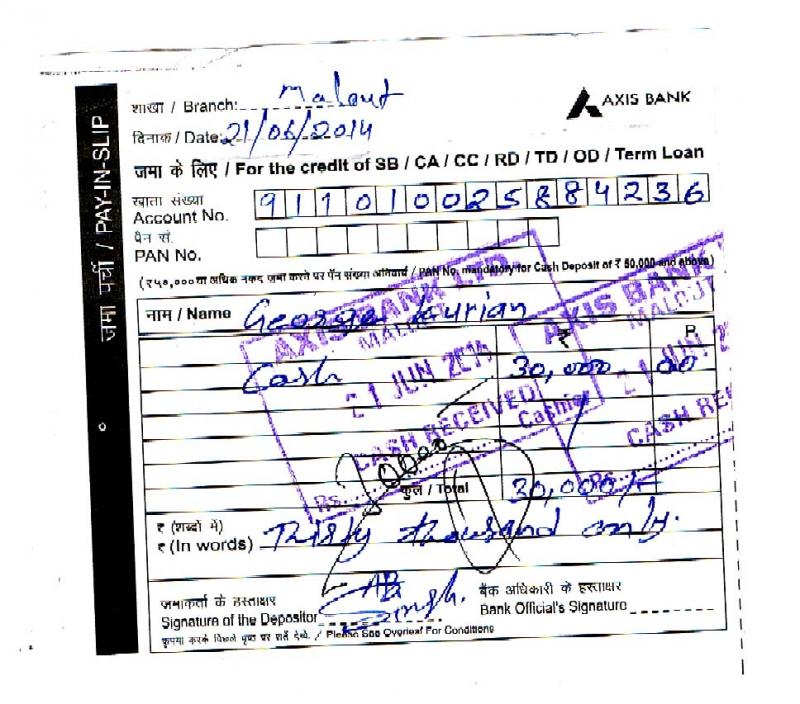 जमा पर्ची / PAY-IN-SLIP
शाखा / Branch: Malout
AXIS BANK
दिनाक / Date: 21/06/2014
जमा के लिए / For the credit of SB / CA / CC / RD / TD / OD / Term Loan
खाता संख्या
Account No. 911010025884236
पैन सं.
PAN No.
(₹५०,००० या अधिक नकद जमा करने पर पॅन संख्या अनिवार्य / PAN No. mandatory for Cash Deposit of ₹ 50,000 and above)
नाम / Name George Kurian
₹ P.
Cash 30,000 00
AXIS BANK LTD.
MALOUT
21 JUN 2014
CASH RECEIVED
Cashier
Rs.
AXIS BANK
MALOUT
21 JUN 20
CASH RE
Rs.
कुल / Total 30,000/-
₹ (शब्दों में)
₹ (In words) Thirty thousand only.
जमाकर्ता के हस्ताक्षर
Signature of the Depositor Singh.
बैंक अधिकारी के हस्ताक्षर
Bank Official's Signature
कृपया करके पिछले पृष्ठ पर शर्ते देखे. / Please See Overleaf For Conditions